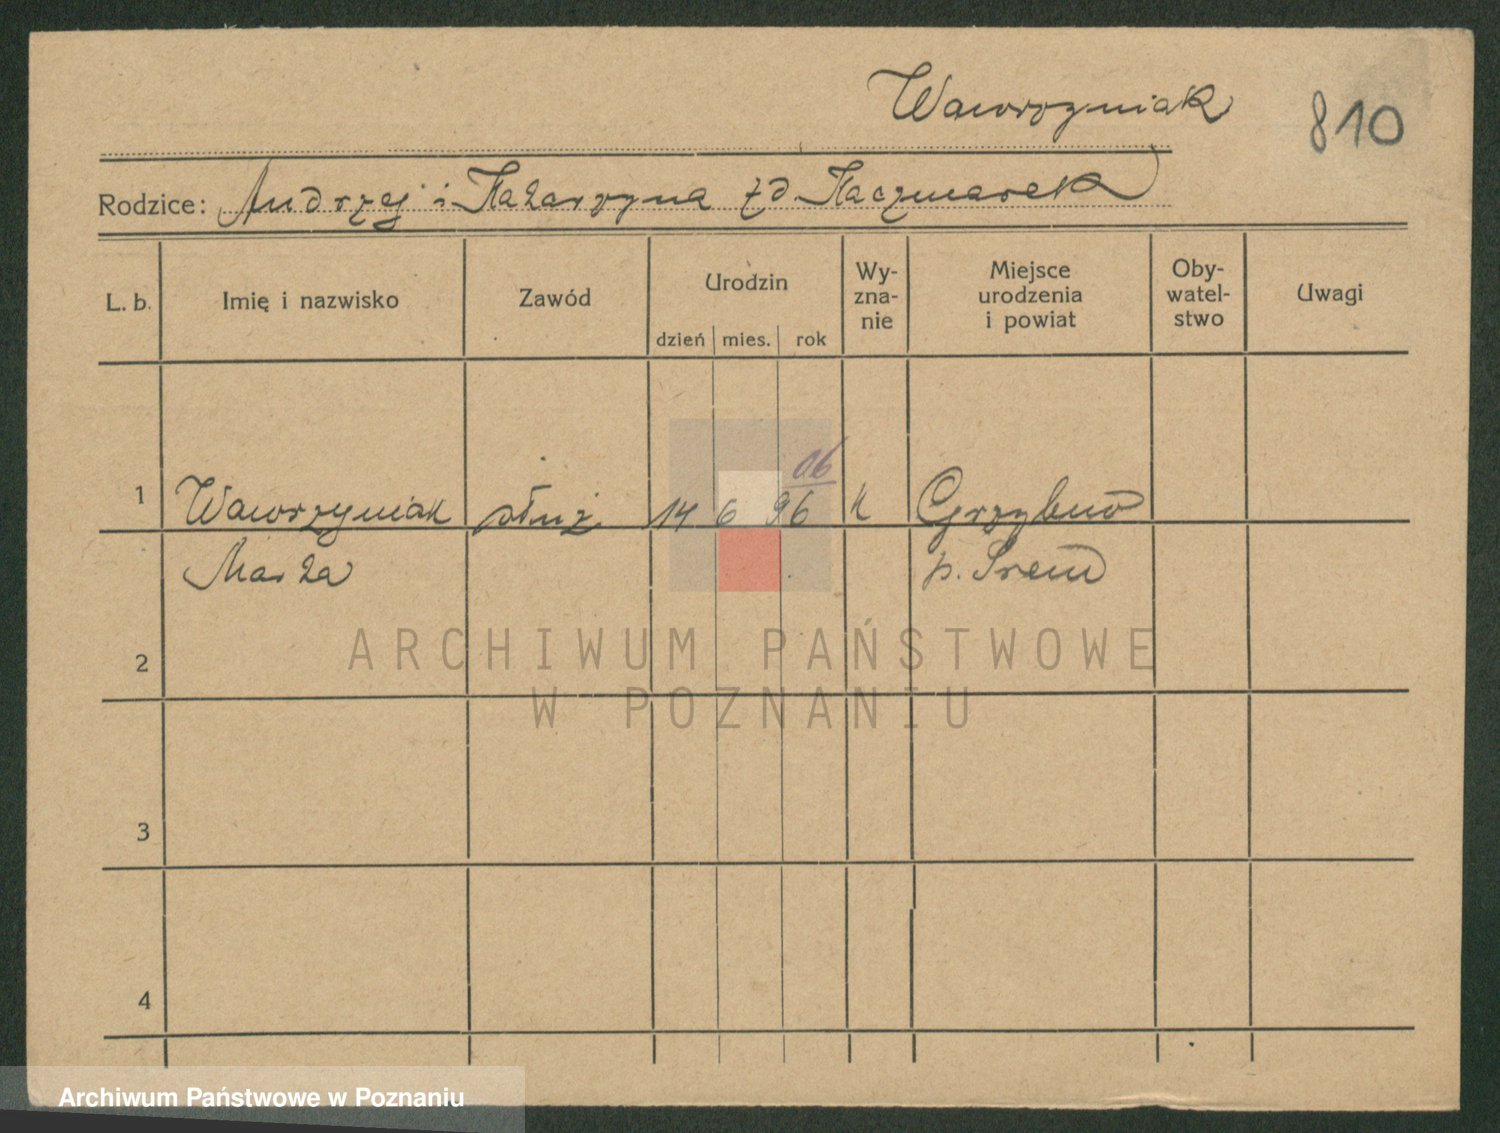 Wawrzyniak
810
Rodzice: Andrzej i Katarzyna zd Kaczmarek
L. b. Imię i nazwisko Zawód Urodzin dzień mies. rok Wy- zna- nie Miejsce urodzenia i powiat Oby- watel- stwo Uwagi
06
1 Wawrzyniak służ 14 6 96 k Grzybno
Marta p. Śrem
2
3
4
ARCHIWUM PAŃSTWOWE
W POZNANIU
Archiwum Państwowe w Poznaniu